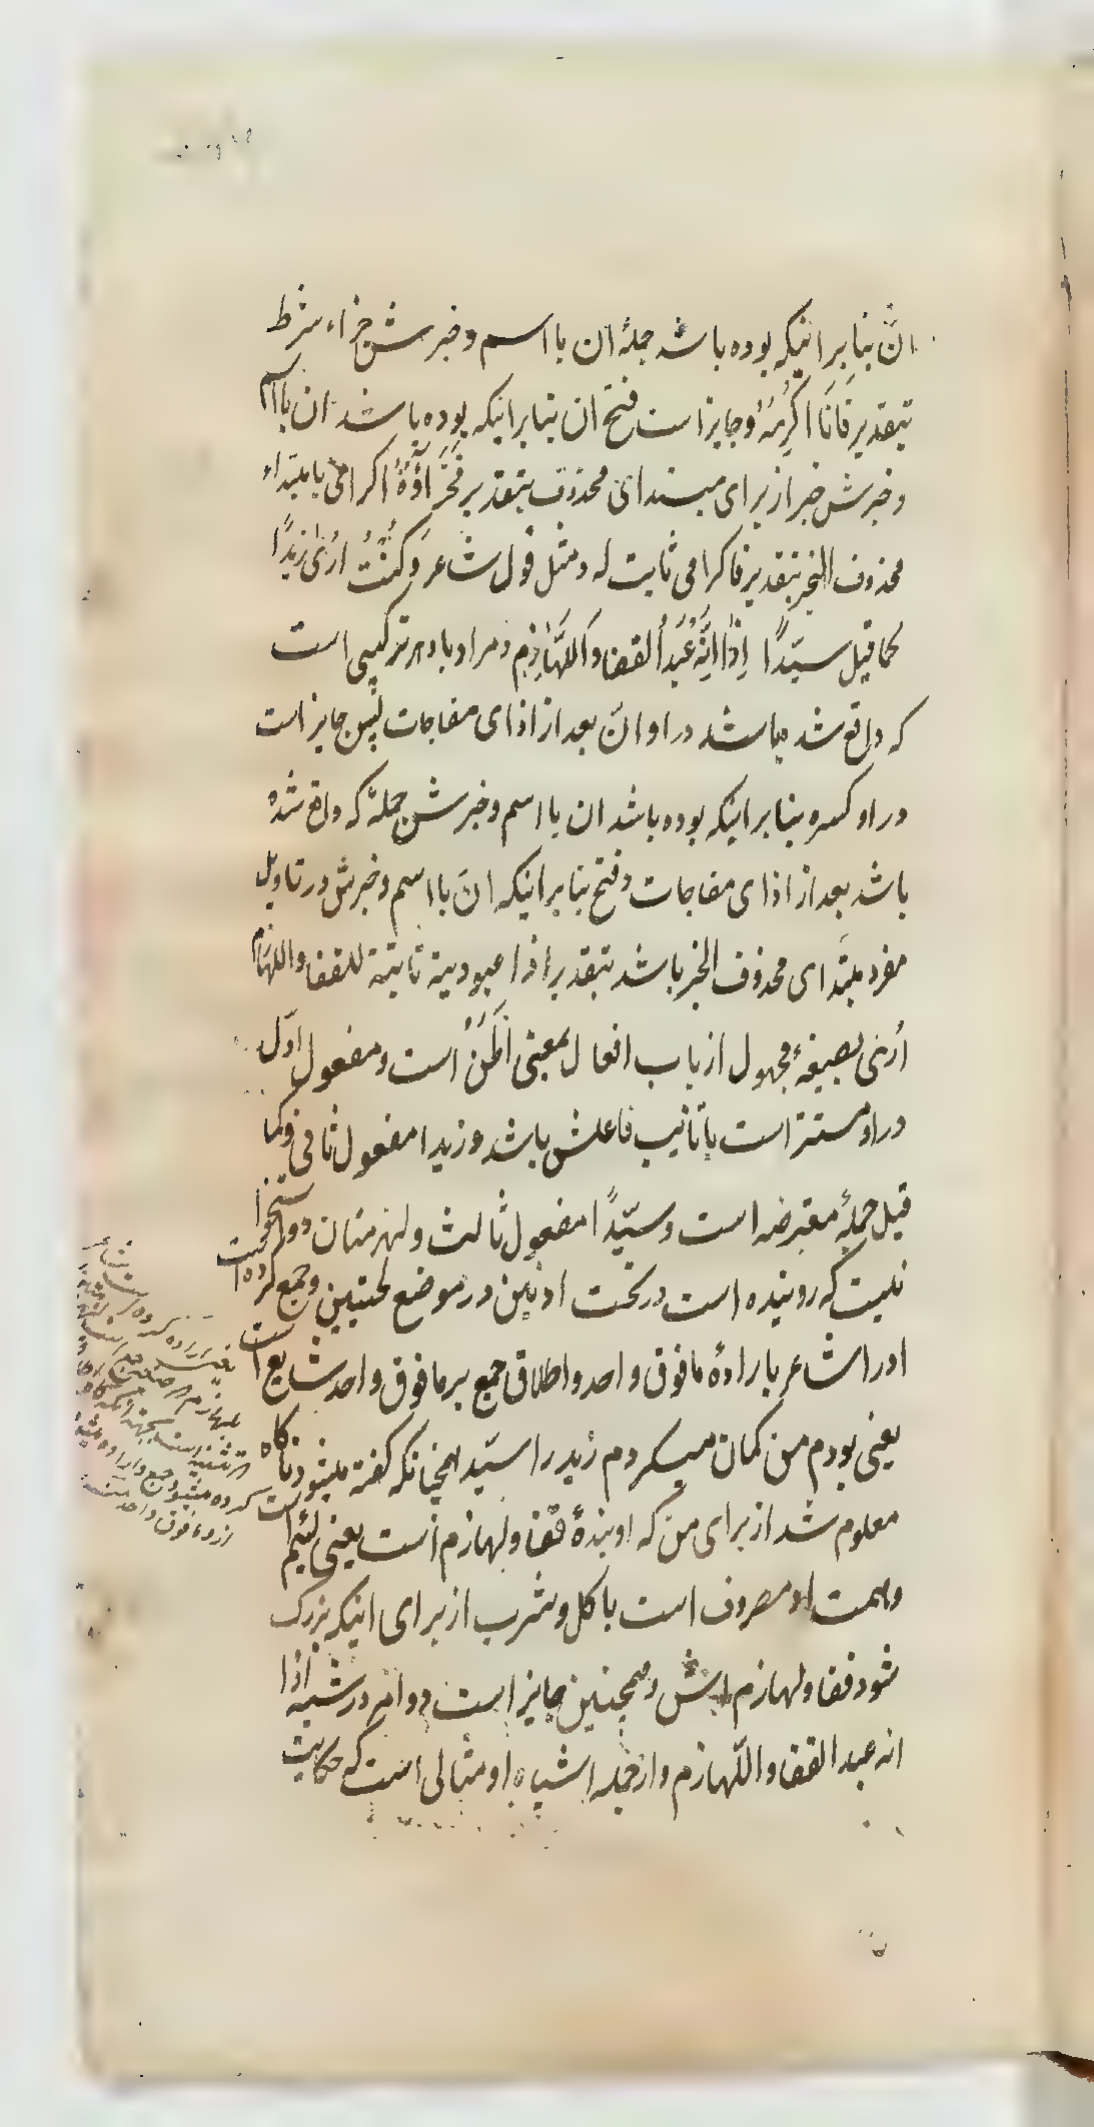 انَّ بنابر اینکه بوده باشد جملهٔ ان با اسم و خبرش جزاء شرط
بتقدیر فَانَا اُکرِمُهُ و جایز است فتح ان بنابر اینکه بوده باشد ان با اسم
و خبرش خبر از برای مبتدای محذوف بتقدیر فَجَزاؤُهُ اکرامی یا مبتداء
محذوف الخبر بتقدیر فاکرامی ثابت له و مثل قول شاعر وَکُنْتُ اُرٰی زیدًا
کما قیل سیّدًا اِذٰا اِنَّهُ عَبْدُ القفا وَاللَّهازِمِ و مراد باو هر ترکیبی است
که واقع شده باشد در او انّ بعد از اذای مفاجات پس جایز است
در او کسره بنابر اینکه بوده باشد ان با اسم و خبرش جملهٔ که واقع شده
باشد بعد از اذای مفاجات و فتح بنابر اینکه انّ با اسم و خبرش در تاویل
مفرد مبتدای محذوف الخبر باشد بتقدیر اذا عبودیة ثابتة للقفا واللهازم
اُرٰی بصیغهٔ مجهول از باب افعال بمعنی اَظُنُّ است و مفعول اوّل
در او مستتر است یا نایب فاعلش باشد و زیدا مفعول ثانی و کما
قیل جملهٔ معترضه است و سیّدًا مفعول ثالث و لهزمتان دو استخوان
نیست که روئیده است در تحت اذنین در موضع لحیتین و جمع کرده است
او را شاعر باراده ما فوق واحد و اطلاق جمع بر ما فوق واحد شایع است
یعنی بودم من گمان میکردم زید را سیّد همچنانکه گفته میشود ناگاه
معلوم شد از برای من که او بندهٔ قفا و لهازم است یعنی لئیم است
و همت او مصروف است باکل و شرب از برای اینکه بزرک
شود قفا و لهازم اش و همچنین جایز است دو امر در شبه اذا
انه عبد القفا واللهازم و از جمله اشباه او مثالی است که حکایت